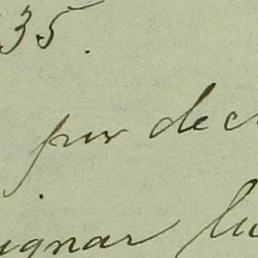 35.
por dec
ignar lu